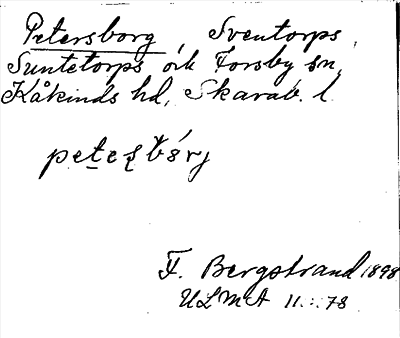 Petersborg Sventorps,
Suntetorps ok Forsby sn,
Kåkinds hd, Skarab. l.
petesbórj
F. Bergstrand 1898
ULMA 11:78